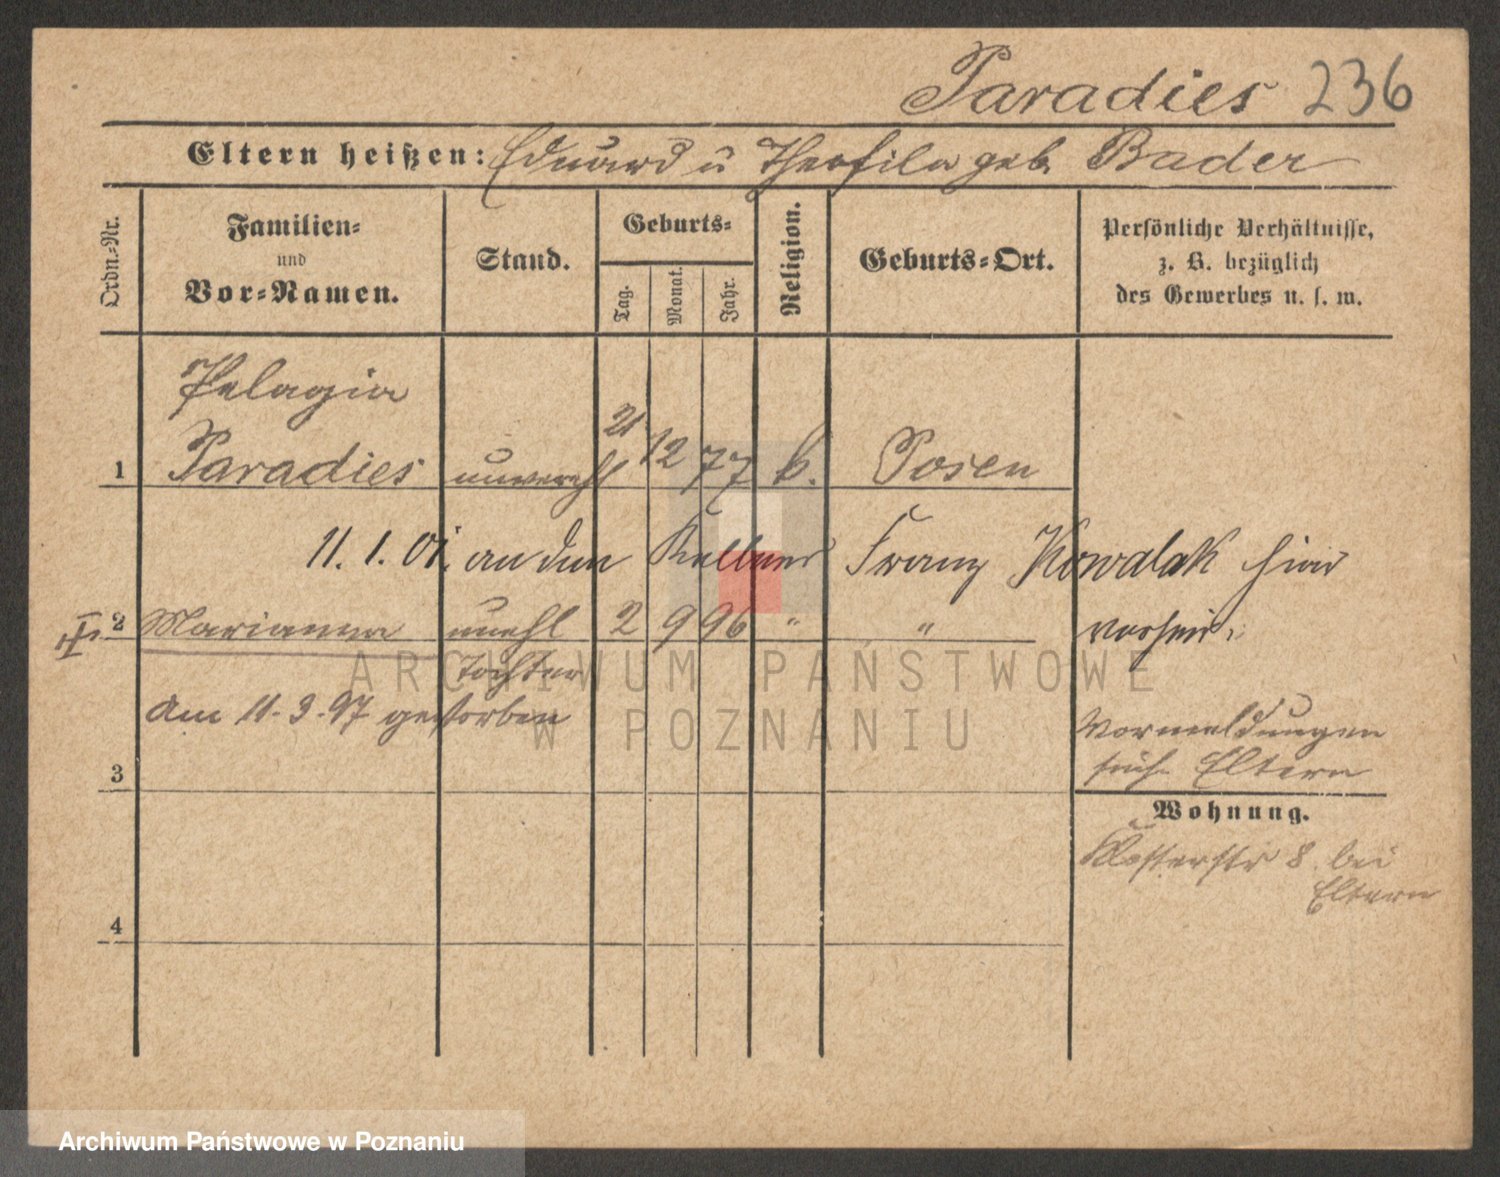 Paradies 236
Eltern heißen: Eduard u Theofila geb. Bader
Ordn.-Nr.
Familien-
und
Vor-Namen.
Stand.
Geburts-
Tag.
Monat.
Jahr.
Religion.
Geburts-Ort.
Persönliche Verhältnisse,
z. B. bezüglich
des Gewerbes u. s. w.
Pelagia
1 Paradies unverehl 21 12 77 k. Posen
11. 1. 01. an den Kellner Franz Kowalak hier
2 Marianna unehl 2 9 96 " "
Tochter
am 11. 3. 97 gestorben
Vormeldungen
Eltern
3
Wohnung.
Klosterstr 8 bei
Eltern
4
ARCHIWUM PAŃSTWOWE
W POZNANIU
Archiwum Państwowe w Poznaniu